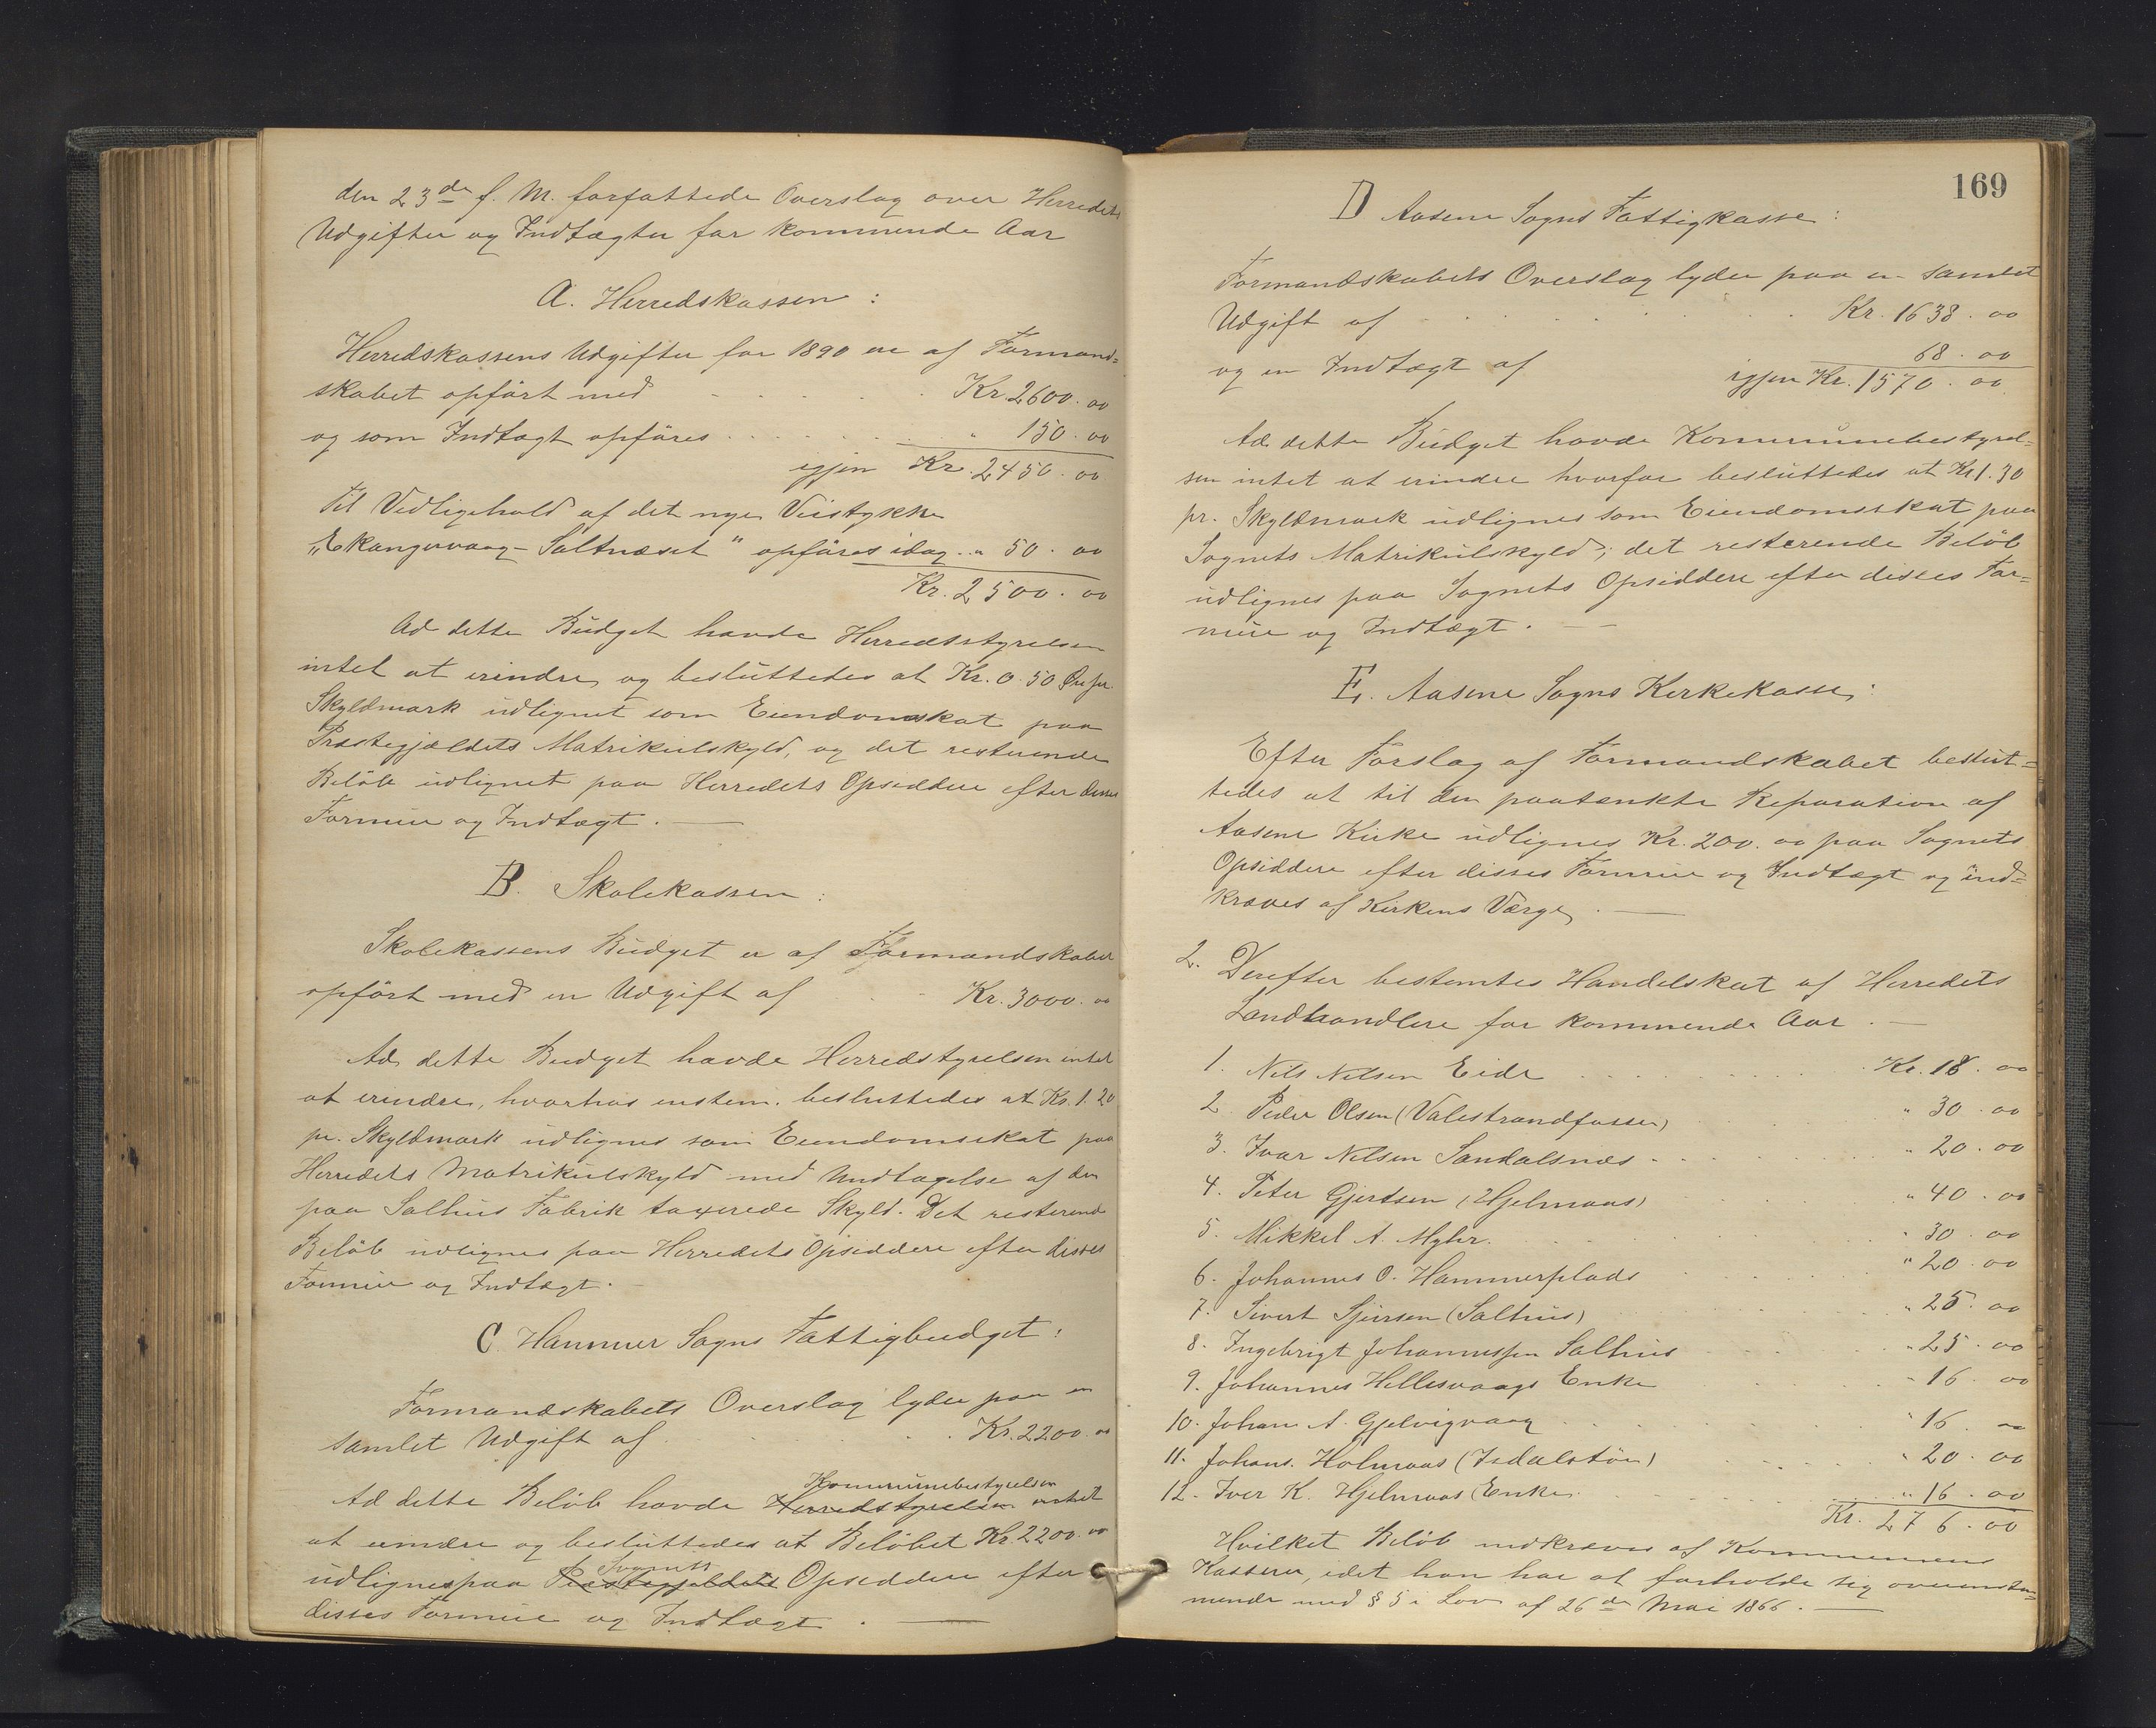 den 23de f. M. forfattede Overslag over Herredets
Udgifter og Indtægter for kommende Aar
A. Herredskassen:
Herredskassens Udgifter for 1890 er af Formand=
skabet opført med . . . . . Kr. 2600.00
og som Indtægt opføres . . . . . " 150.00
igjen Kr. 2450.00
til Vedligehold af det nye Veistykke
„Ekangervaag–Saltnæset" opføres idag .. " 50.00
Kr. 2500.00
Ad dette Budget havde Herredsstyrelsen
intet at erindre, og besluttedes at Kr. 0.50 Øre pr.
Skyldmark udlignet som Eiendomskat paa
Præstegjældets Matrikulskyld, og det resterende
Beløb udlignet paa Herredets Opsiddere efter disses
Formue og Indtægt. —
B. Skolekassen:
Skolekassens Budget er af Formandskabet
opført med en Udgift af . . Kr. 3000.00
Ad dette Budget havde Herredstyrelsen intet
at erindre, hvorhos enstem. besluttedes at Kr. 1.20
pr. Skyldmark udlignes som Eiendomsskat paa
Herredets Matrikulskyld med Undtagelse af den
paa Salhus Fabrik taxerede Skyld. Det resterende
Beløb udlignes paa Herredets Opsiddere efter disses
Formue og Indtægt.
C. Hammer Sogns Fattigbudget:
Formandskabets Overslag lyder paa en
samlet Udgift af . . . . . Kr. 2200.00
Kommunebestyrelsen
Ad dette Beløb havde Herredstyrelsen intet
at erindre og besluttedes at Beløbet Kr. 2200.00
Sognets
udlignes paa Præstegjeldets Opsiddere efter
disses Formue og Indtægt . —
169
D Aasene Sogns Fattigkasse:
Formandskabets Overslag lyder paa en samlet
Udgift af . . . . . . Kr. 1638.00
og en Indtægt af 68.00
igjen Kr. 1570.00
Ad dette Budget havde Kommunebestyrel=
sen intet at erindre hvorfor besluttedes at Kr. 1.30
pr. Skyldmark udlignes som Eiendomsskat paa
Sognets Matrikulskyld; det resterende Beløb
udlignes paa Sognets Opsiddere efter disses For=
mue og Indtægt. —
E. Aasene Sogns Kirkekasse:
Efter Forslag af Formandskabet beslut=
tedes at til den paatænkte Reparation af
Aasene Kirke udlignes Kr. 200.00 paa Sognets
Opsiddere efter disses Formue og Indtægt og ind=
kræves af Kirkens Værge. —
2. Derefter bestemtes Handelskat af Herredets
Landhandlere for kommende Aar. —
1. Nils Nilsen Eide . . . . . Kr. 18.00
2. Peder Olsen (Valestrandfossen) . . " 30.00
3. Ivar Nilsen Sandalsnæs . . . . " 20.00
4. Peter Gjertsen (Hjelmaas) . . . " 40.00
5. Mikkel A. Myhr. . . . . " 30.00
6. Johannes O. Hammerplads . . . " 20.00
7. Sivert Sjursen (Salhus) . . . " 25.00
8. Ingebrigt Johannessen Salhus . . " 25.00
9. Johannes Hellesvaags Enke . . . " 16.00
10. Johan A. Gjelvigvaag . . . . " 16. "
11. Johans. Holmaas (Isdalstøn) . . . " 20.00
12. Iver K. Hjelmaas Enke. . . . . " 16.00
Kr. 276.00
Hvilket Beløb indkræves af Kommunens
Kasserer, idet han har at forholde sig overensstem=
mende med § 5 i Lov af 26de Mai 1866. —